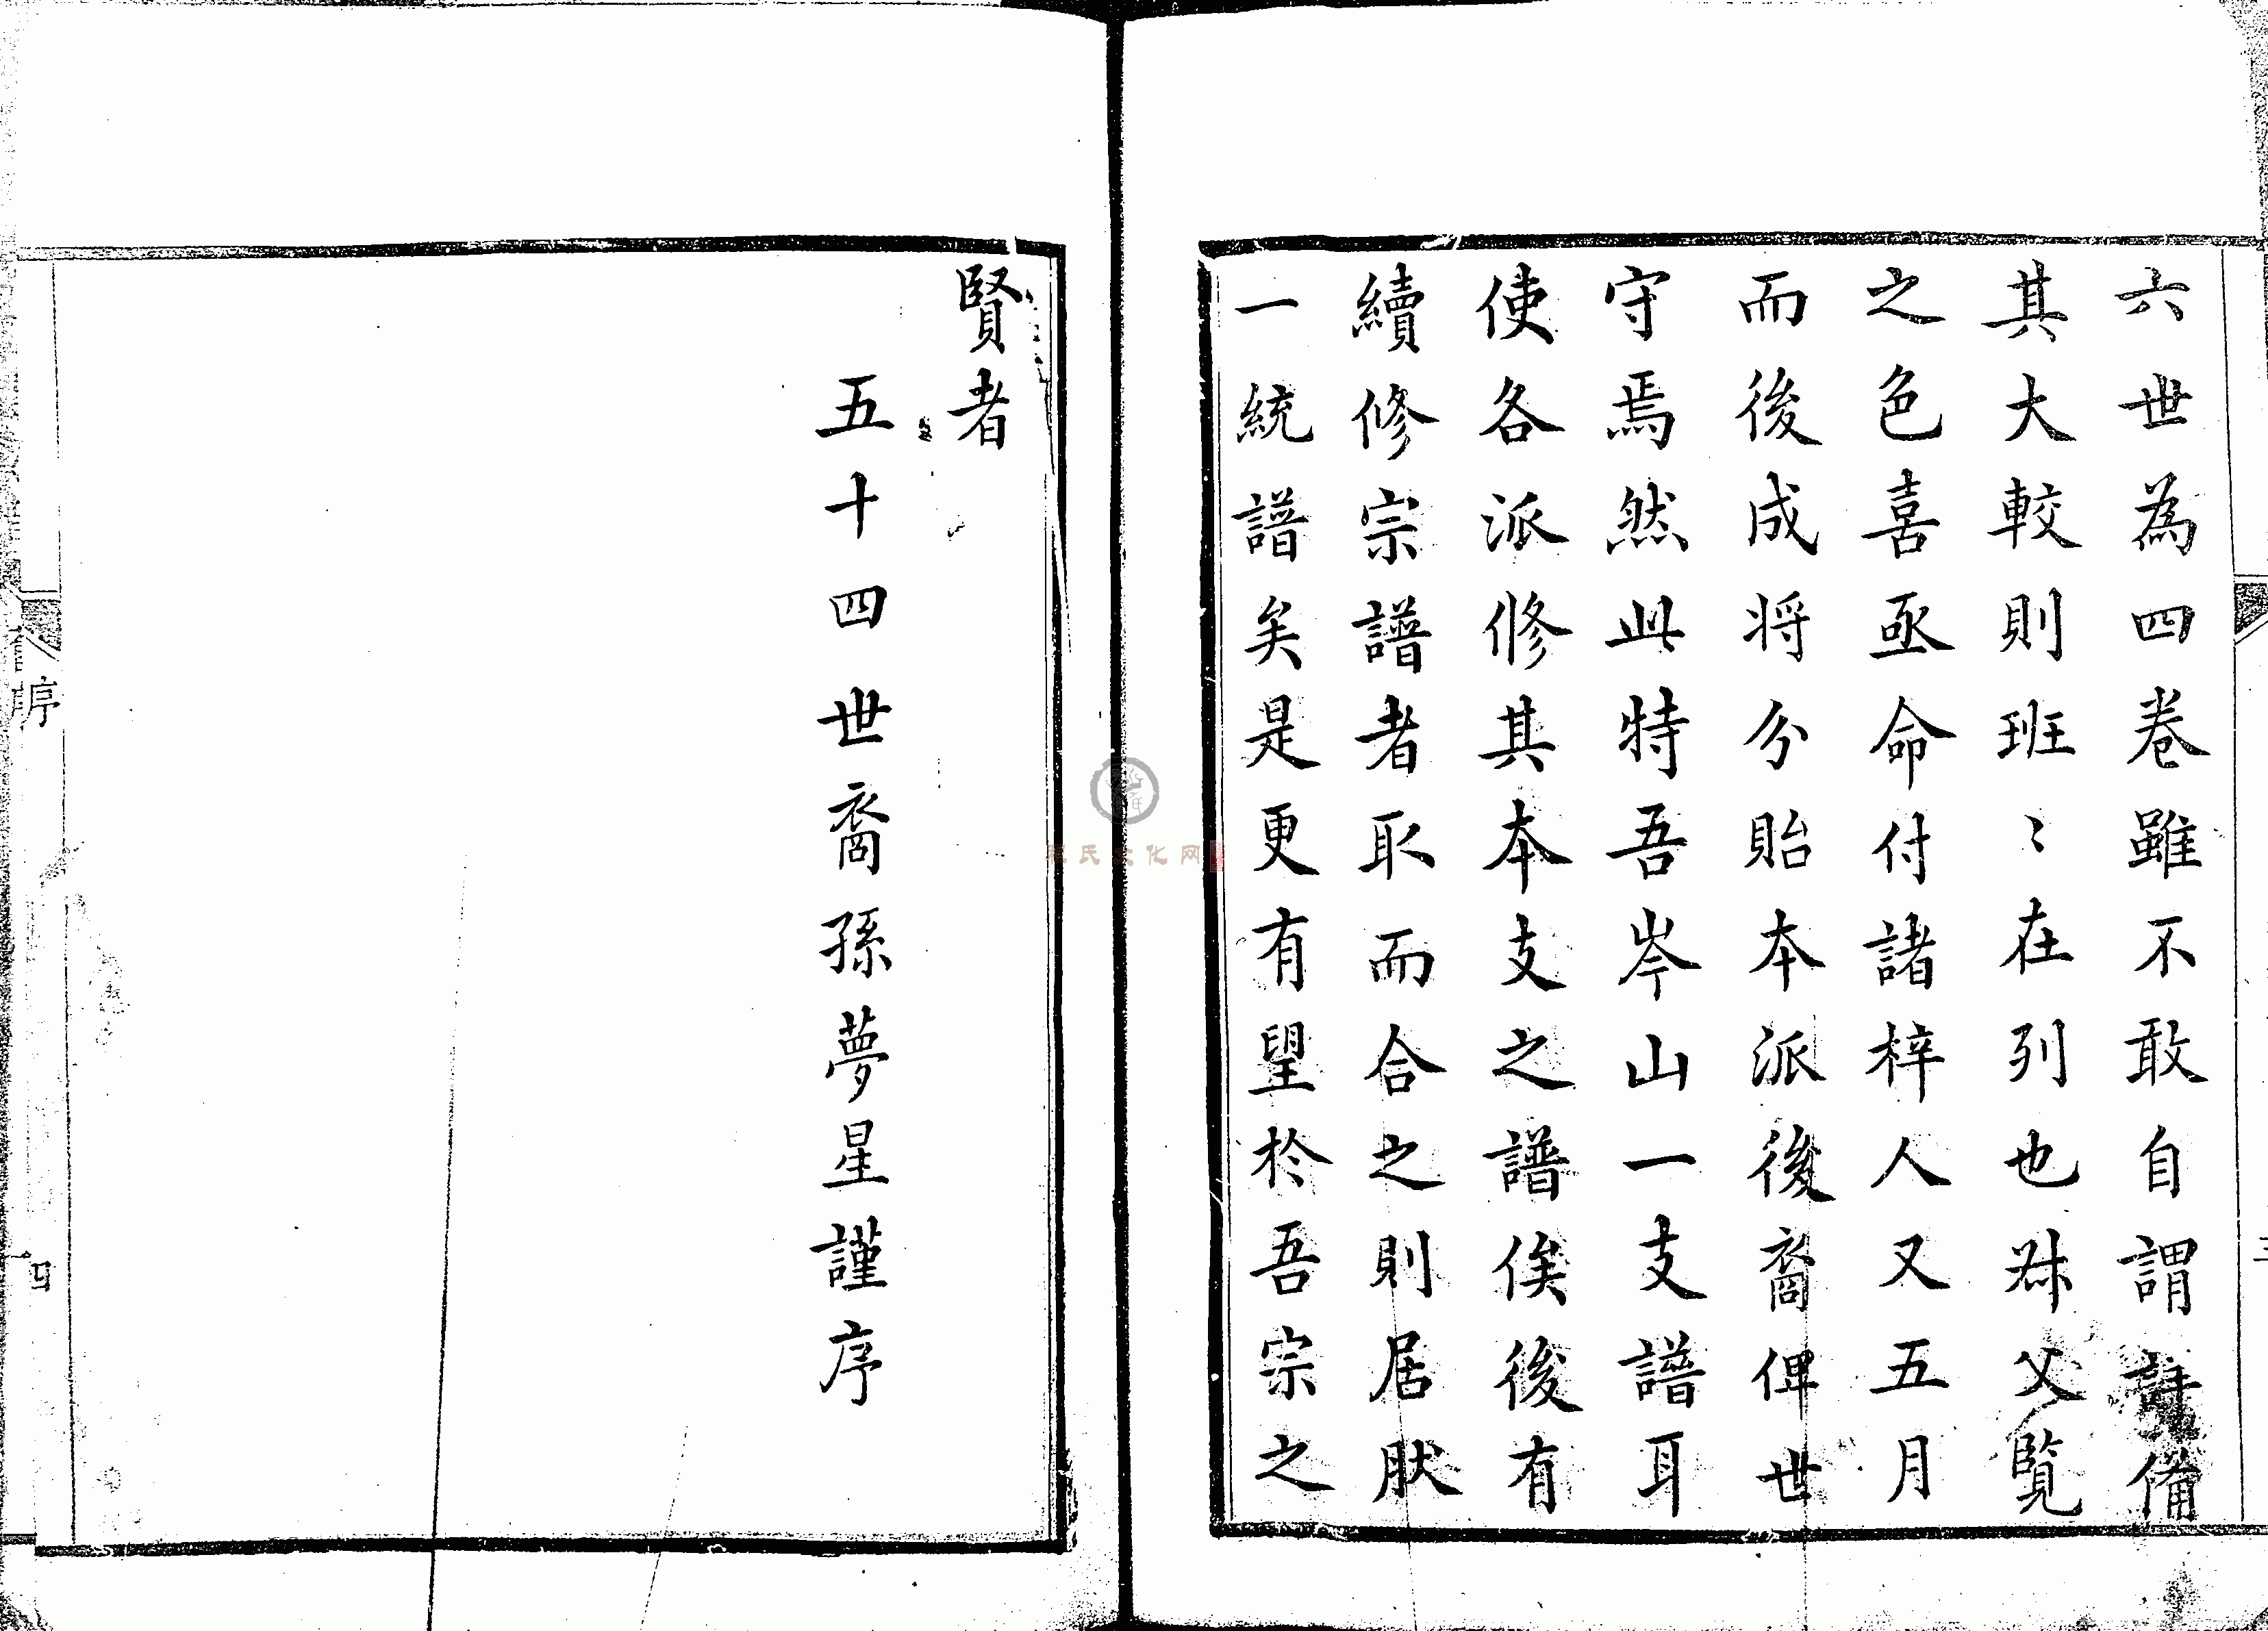 六世為四卷雖不敢自謂詳備
其大較則班〻在列也𣏌父覽
之色喜亟命付諸梓人又五月
而後成將分貽本派後裔俾世
守焉然此特吾岑山一支譜耳
使各派修其本支之譜俟後有
續修宗譜者取而合之則居肰
一統譜矣是更有望於吾宗之
賢者
五十四世裔孫夢星謹序
序
四
氏文化网